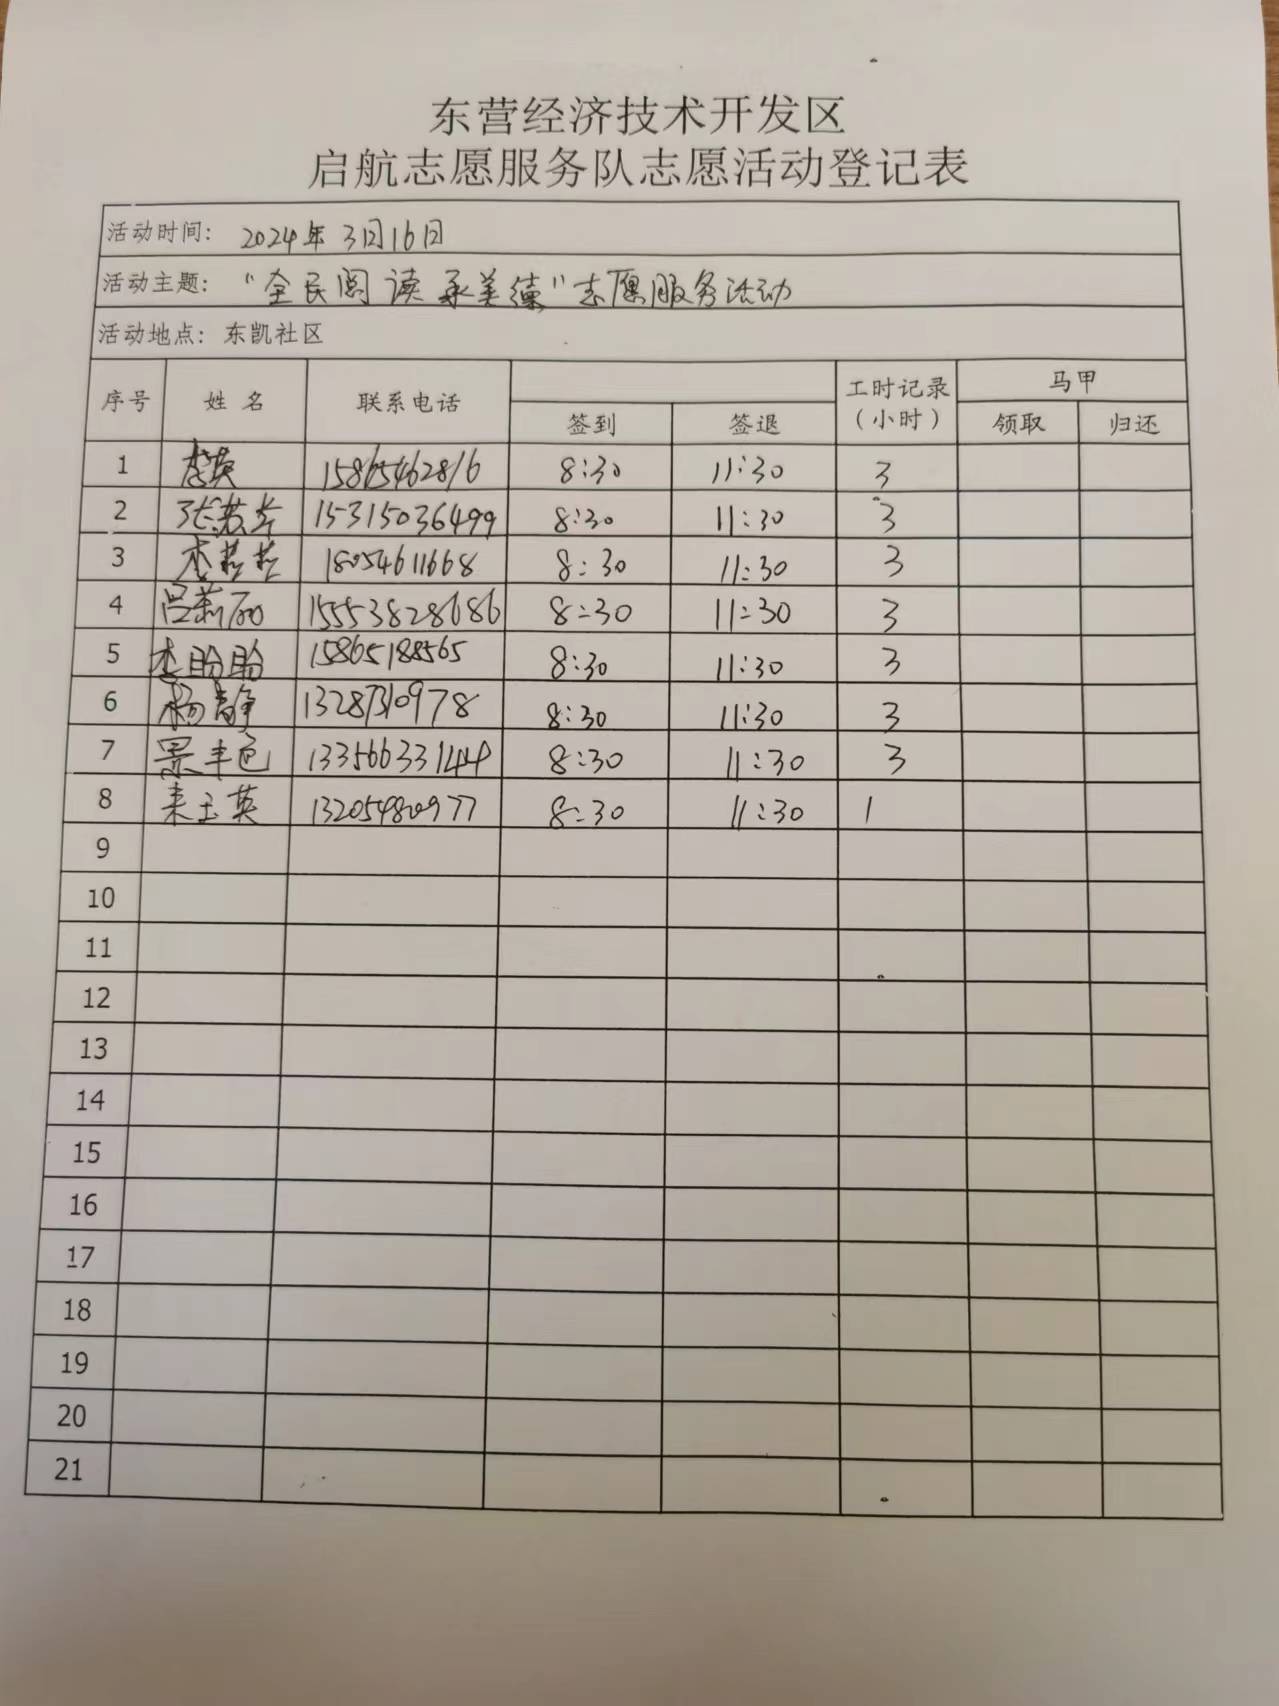 东营经济技术开发区
启航志愿服务队志愿活动登记表
活动时间: 2024年3月16日
活动主题: “全民阅读 承美德”志愿服务活动
活动地点: 东凯社区
序号 姓名 联系电话 签到 签退 工时记录(小时) 马甲 领取 归还
1 李英 15865462816 8:30 11:30 3
2 张 15315036499 8:30 11:30 3
3 李 18054611668 8:30 11:30 3
4 吕莉丽 15553828686 8:30 11:30 3
5 李盼盼 15865188565 8:30 11:30 3
6 杨静 13287310978 8:30 11:30 3
7 景丰 13356633144 8:30 11:30 3
8 玉英 13205480977 8:30 11:30 1
9
10
11
12
13
14
15
16
17
18
19
20
21